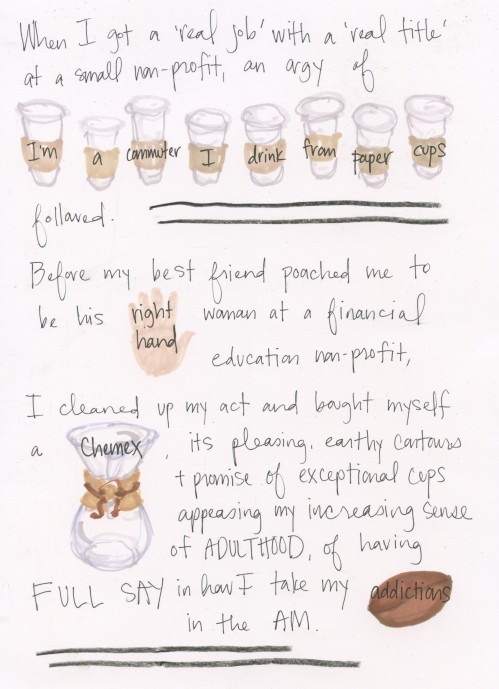 When I got a 'real job' with a 'real title'
at a small non-profit, an orgy of
I'm a commuter I drink from paper cups
followed.
Before my best friend poached me to
be his right hand woman at a financial
education non-profit,
I cleaned up my act and bought myself
a Chemex, its pleasing, earthy contours
+ promise of exceptional cups
appeasing my increasing sense
of ADULTHOOD, of having
FULL SAY in how I take my addictions
in the AM.